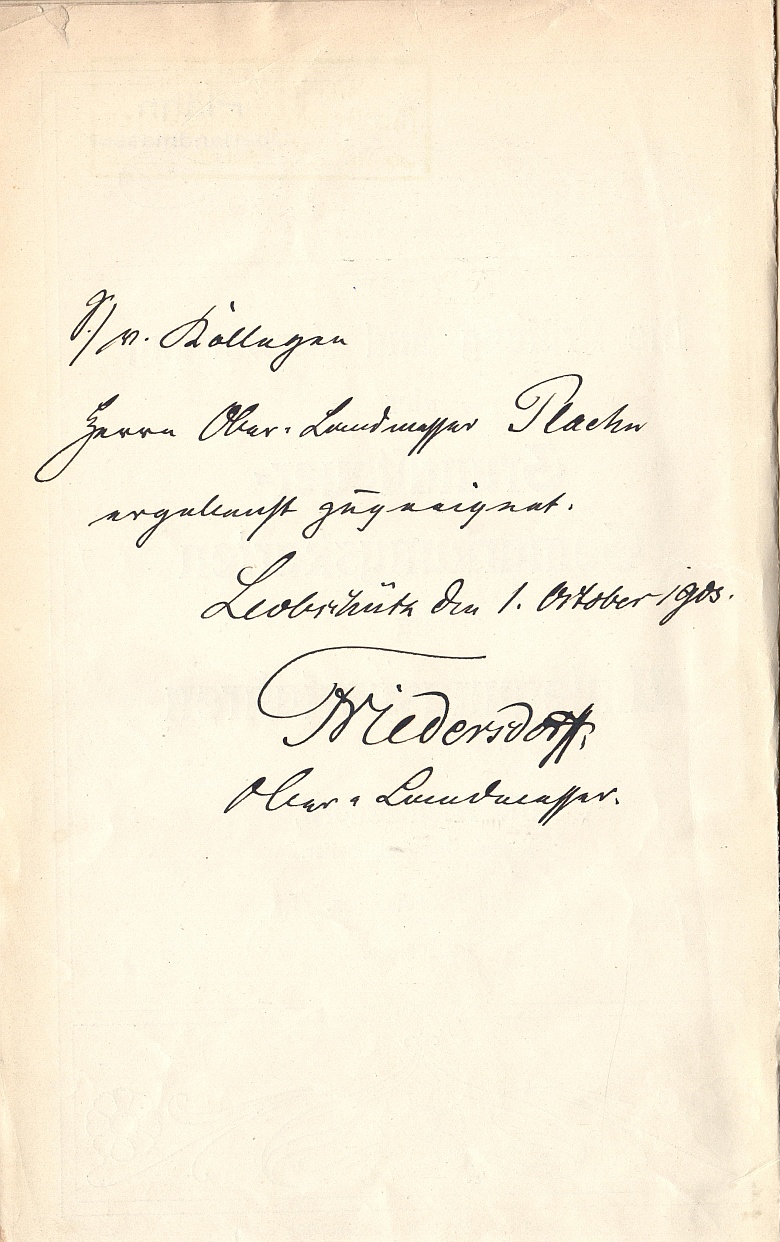 S/ v. Kollegen
Herrn Ober-Landmesser Plachn
ergebenst zugeeignet.
Leobschütz den 1. October 1903.
Friedersdorff,
Ober-Landmesser.